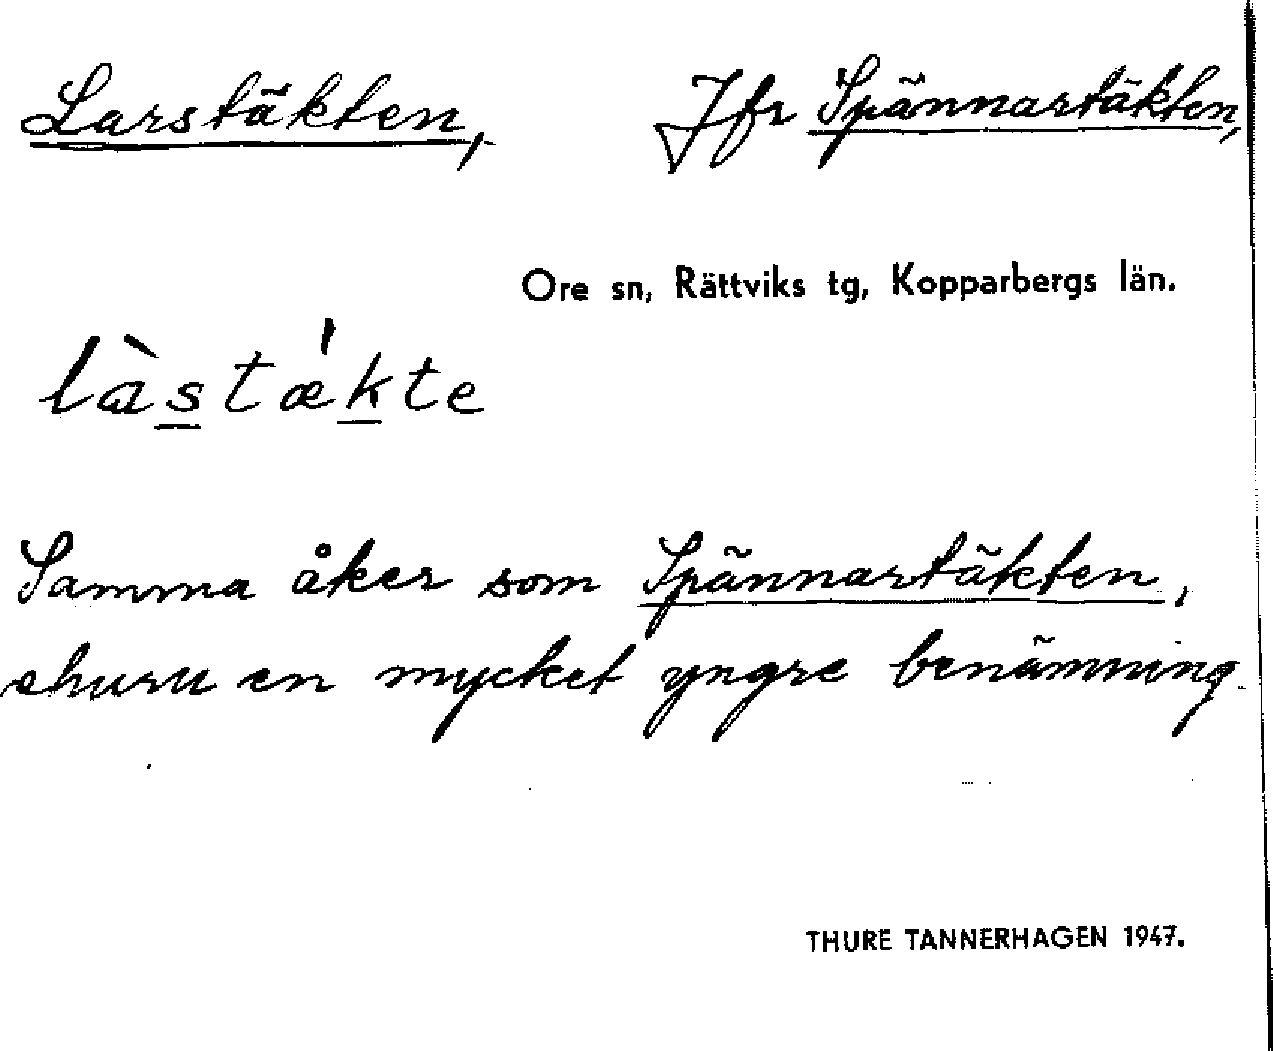 Larstäkten, Jfr Spännartäkten,
Ore sn, Rättviks tg, Kopparbergs län.
làstǽkte
Samma åker som Spännartäkten,
ehuru en mycket yngre benämning
THURE TANNERHAGEN 1947.